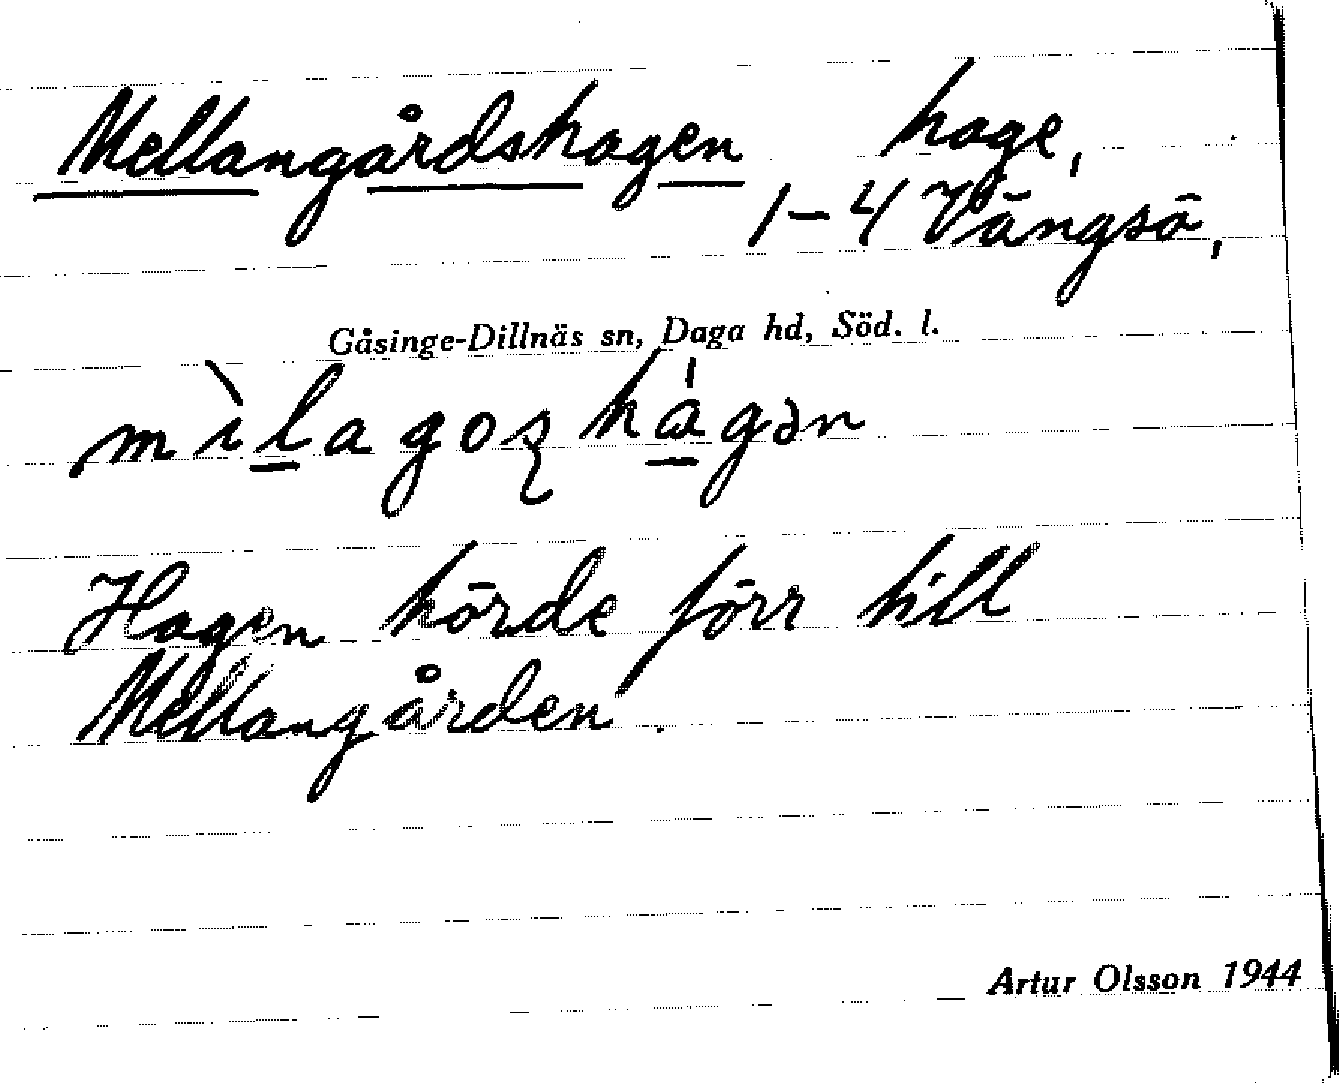 Mellangårdshagen hage,
1-4 Vängsö,
Gåsinge-Dillnäs sn, Daga hd, Söd. l.
Hagen hörde förr till
Mellangården.
Artur Olsson 1944